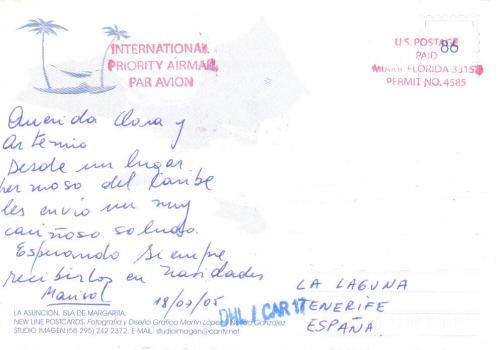 INTERNATIONAL
PRIORITY AIRMAIL
PAR AVION
U.S. POSTAGE
86
PAID
MIAMI FLORIDA 33152
PERMIT NO. 4585
Querida Clara y
Artemio
Desde un lugar
hermoso del Caribe
les envio un muy
cariñoso saludo.
Esperando siempre
recibirlos en navidades
Marisol 18/07/05
DHL / CAR 17
LA LAGUNA
TENERIFE
ESPAÑA.
LA ASUNCIÓN, ISLA DE MARGARITA.
NEW LINE POSTCARDS. Fotografía y Diseño Gráfico Martín López González
STUDIO IMAGEN (58 295) 242 2372. E-MAIL: studioimagen@cantv.net